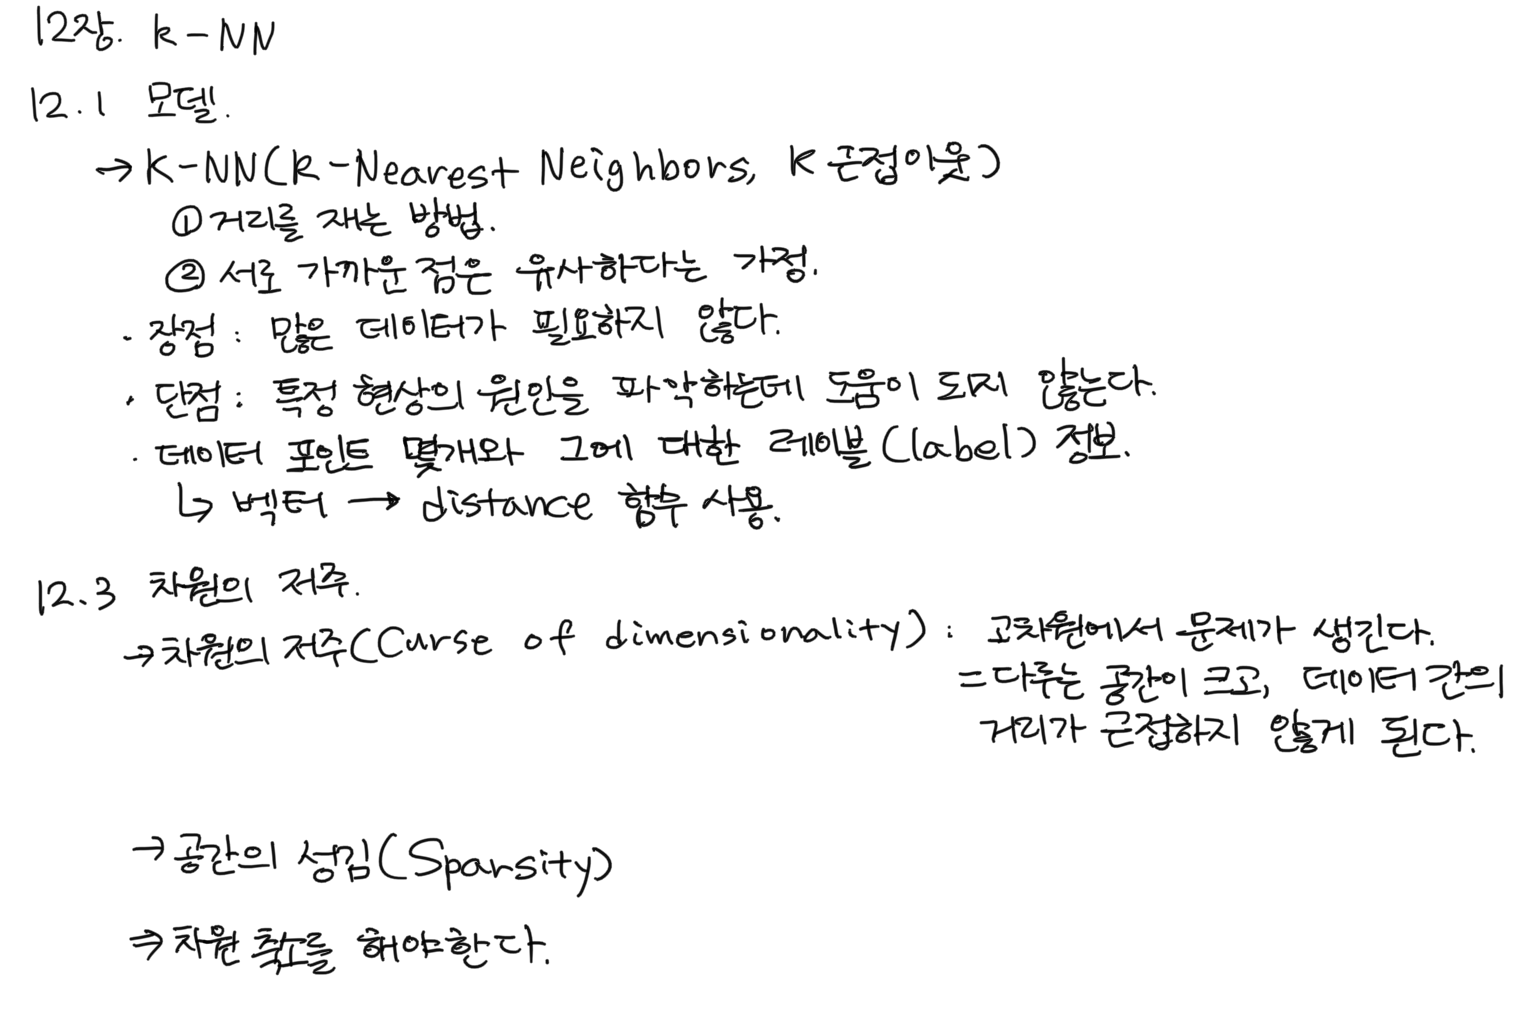 12장. k-NN
12.1 모델.
→ K-NN(k-Nearest Neighbors, K 근접이웃)
① 거리를 재는 방법.
② 서로 가까운 점은 유사하다는 가정.
· 장점 : 많은 데이터가 필요하지 않다.
· 단점 : 특정 현상의 원인을 파악하는데 도움이 되지 않는다.
· 데이터 포인트 몇개와 그에 대한 레이블(label) 정보.
↳ 벡터 → distance 함수 사용.
12.3 차원의 저주.
→ 차원의 저주(Curse of dimensionality) : 고차원에서 문제가 생긴다.
= 다루는 공간이 크고, 데이터 간의
거리가 근접하지 않게 된다.
→ 공간의 성김(Sparsity)
⇒ 차원 축소를 해야한다.